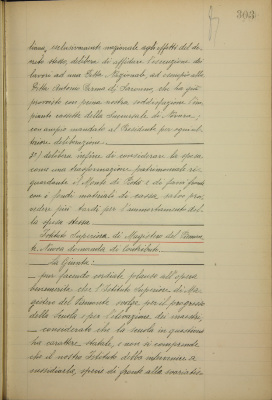 303
liana, esclusivamente nazionale agli effetti del de-
creto stesso, delibera di affidare l'esecuzione dei
lavori ad una Ditta Nazionale, ad esempio alla
Ditta Antonio Penno di Saronno, che ha già
provvisto con piena nostra soddisfazione l'im-
pianto esistente della Succursale di Novara;
con ampio mandato al Presidente per ogni ul-
teriore deliberazione.
2°) delibera infine di considerare la spesa
come una trasformazione patrimoniale ri-
guardante il Monte di Pietà e di farvi fronte
con i fondi materiali di cassa, salvo prov-
vedere più tardi per l'ammortamento del-
la spesa stessa.
Istituto Superiore di Magistero del Piemon-
te. Nuova domanda di contributo.
La Giunta:
pur facendo cordiale plauso all'opera
benemerita che l'Istituto Superiore di Ma-
gistero del Piemonte svolge per il progresso
della Scuola e per l'elevazione dei maestri,
considerato che la scuola in questione
ha carattere statale, e non si comprende
che il nostro Istituto debba intervenire a
sussidiarla, specie di fronte alla